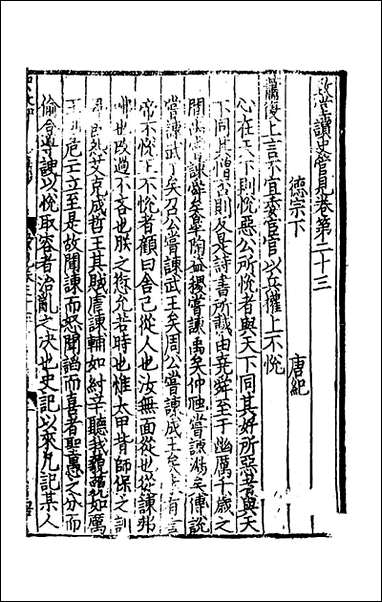 致堂讀史管見卷第二十三
德宗下 唐紀
蕭復上言不宜委宦官以兵權上不悅
心在天下則悅惡公所悅者與天下同其好所惡者與天
下同其憎否則各是詩書所載由堯舜至于幽厲千歲之
間禹嘗諫舜矣皋陶益稷嘗諫禹矣仲虺嘗諫湯矣傅說
嘗諫武丁矣召公嘗諫武王矣周公嘗諫成王矣上有言
帝不悅上不悅者顧曰舍己從人也汝無面從也從諫弗
咈也改過不吝也朕之愆允若時也惟太甲昔師保之訓
克成哲王其賊虐諫輔如紂辛聽我藐藐如厲
王危亡立至是故聞諫而怒聞諂而喜者聖愚之分而
偷合導諛以悅取容者治亂之决也史記以來凡記某人